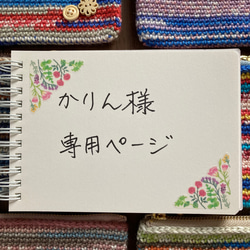 かりん様
専用ページ